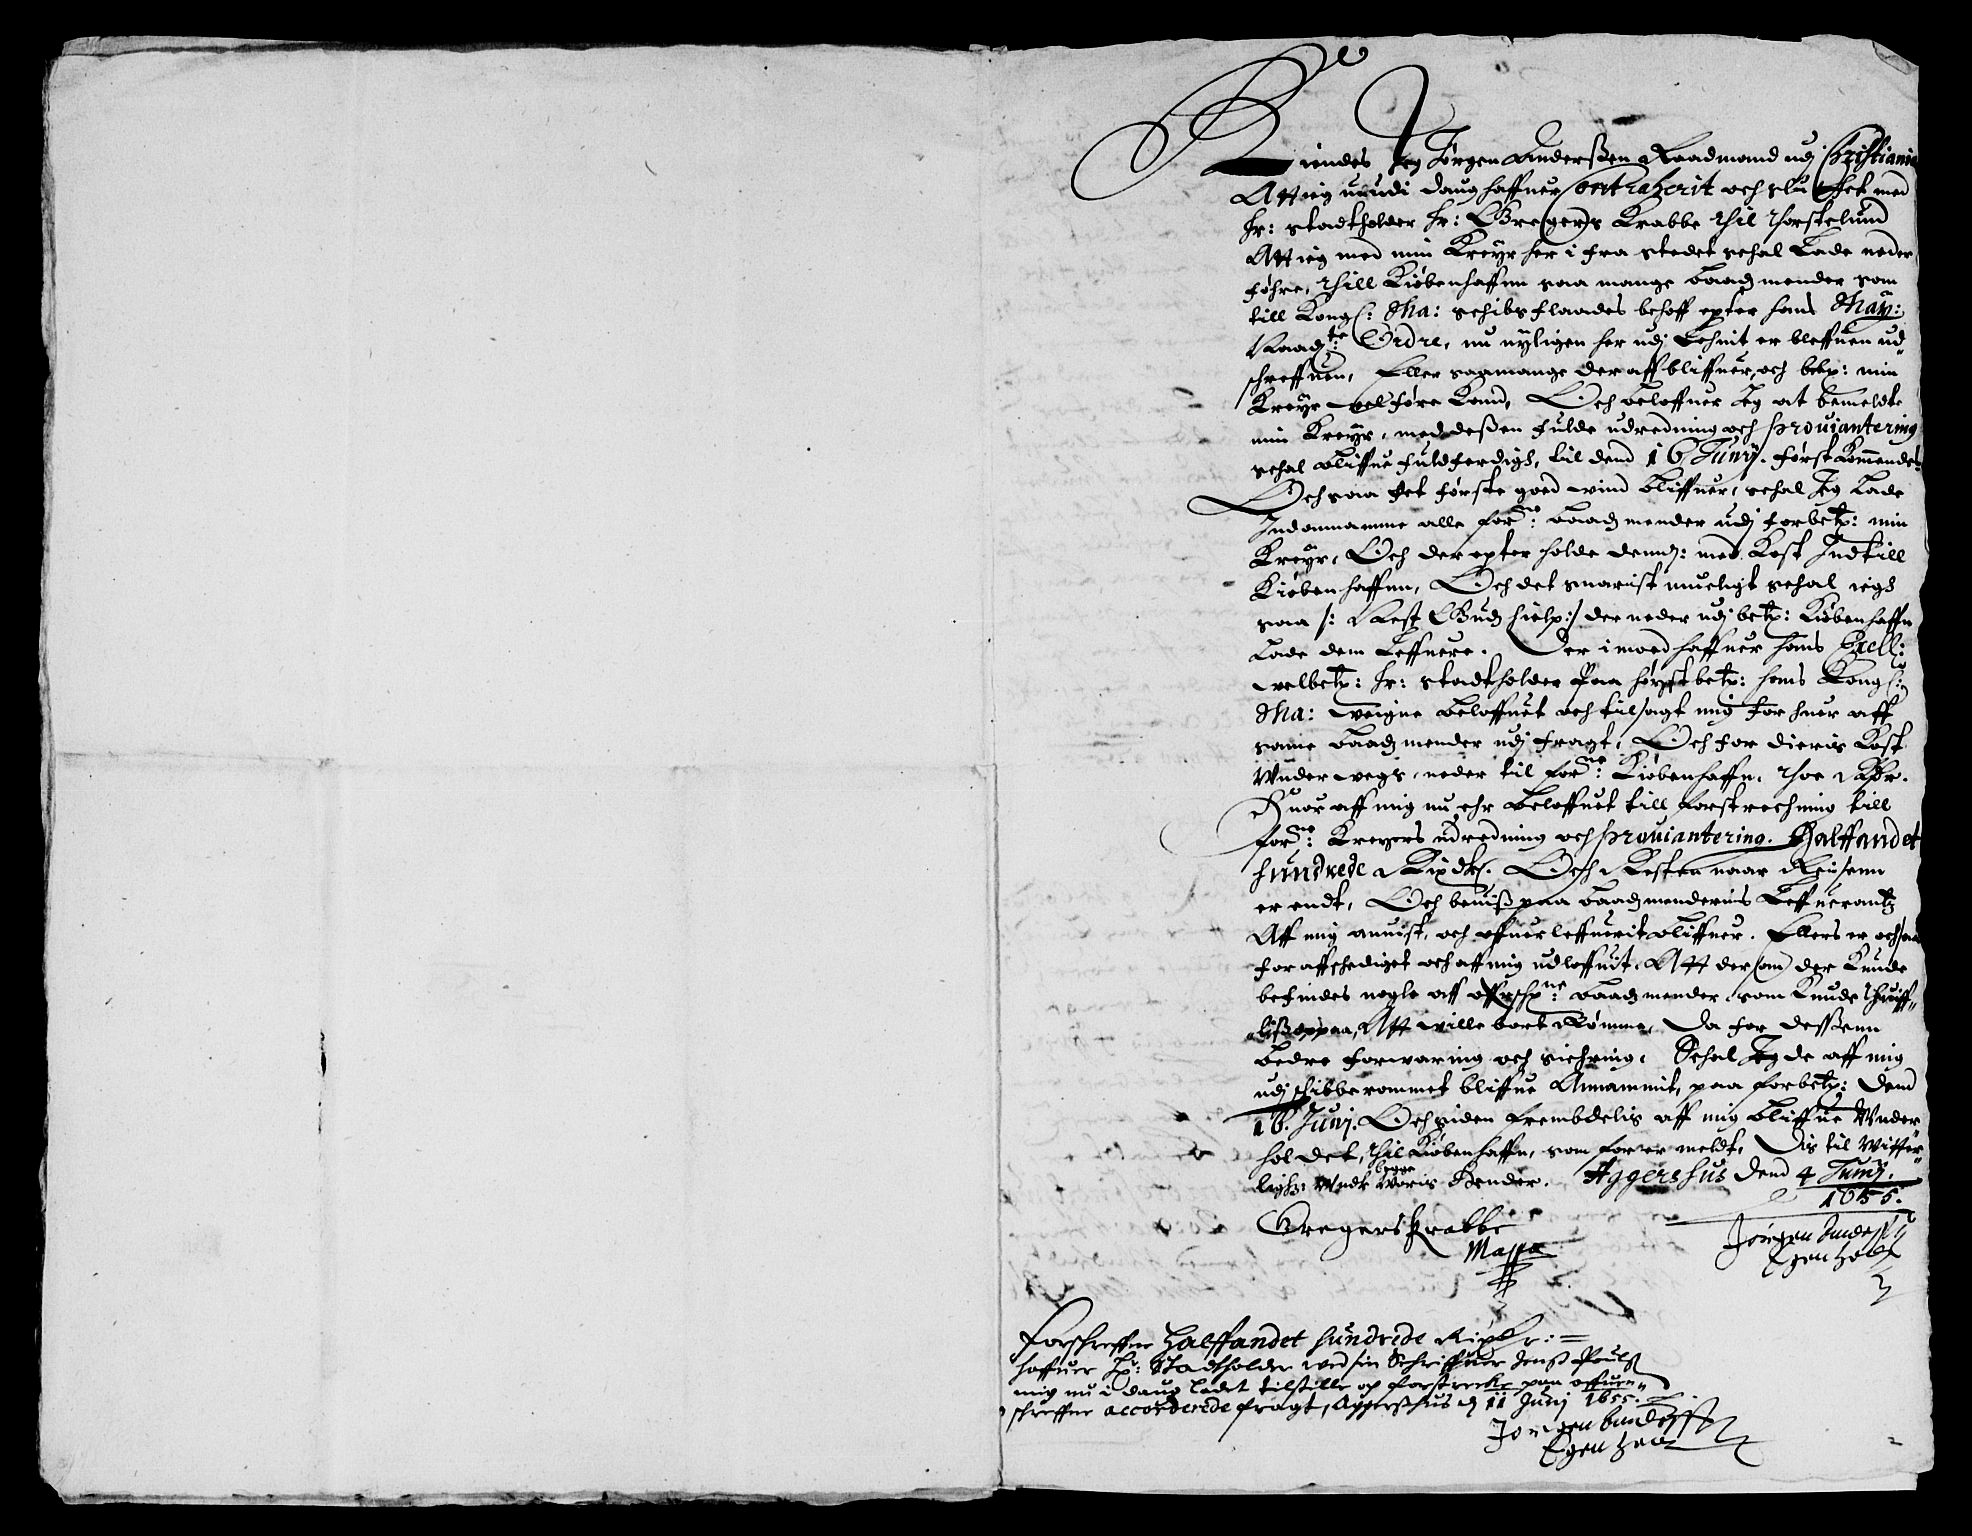 Kiendes Jeg Jørgen Anderßen Raadmand udj Christiania
Att ieg nu udi daug haffuer Contraherit och sluttet med
Hr: Stadtholder Hr: Gregers Krabbe thil Thorstelund
Att ieg med min Kreyer her i fra stedet schal Lade neder
føhre, thill Kiøbenhaffnn saa mange Baadzmender som
till Kongl: Ma: schibsflaades behoff epter hans May:
Naadste: Ordre, nu nyligen her udj Lehnit er bleffuen ud
schreffuen, Eller saamange der aff bliffuer, och bete: min
Kreyer vel føre kand, Och Loffuer Jeg at bemeldte
min Kreyer, med deßen fulde udredning och Prouiantering
schal bliffue fuldferdigh, til dend 16 Junij. førstkommendes
Och saa det første goed wind bliffuer, schal Jeg Lade
Indannamme alle forne: Baadzmender udj forbete: min
Kreyer, Och der epter holde dennom: med Kost Indtill
Kiøbenhaffnn, Och det snarist mueligt schal iegh
saa /: Nest Gudz hielp :/ der neder udj bete: Kiøbenhaffn
Lade dem Leffuere. Der imod haffuer hans Excell:
velbete: Hr: Stadtholder Paa høystbete: hans Kongl:
Ma: Weigne Loffuet och tilsagt mig for huer aff
samme Baadzmender udj fragt, Och for dieris Kost
Underwegs, neder til forne: Kiøbenhaffn, thoe Rdr.
Huor aff mig nu ehr Loffuet till forstrechning till
forne: Kreyers udredning och Prouiantering. Halffandet
hundrede Rixdlr. Och Resten naar Reisenn
er endt, Och beuiß paa Baadzmenderins Leffuerantz
Aff mig anuist, och offuerleffuerit bliffuer. Ellers er och saa
for affschediget och aff mig udloffuit, Att der som der kunde
befindes nogle aff offrschne: Baadzmender, som kunde
oppaa, Att wille bort Rømme, Da for desßenn
bedre forwaring och sichring, Schal Jeg de aff mig
udj schibberommet bliffue Annammit, paa forbete: dend
16. Junj. Och siden frembdelis aff mig bliffue Under
holdet, thil Kiøbenhaffn, som for er meldt, Dis til Witter
lighed: Undr Woris begge Hender. Aggershus dend 4 Junij.
1655.
Gregers Krabbe
Mappa
Jørgen Anderß
Egen hand
Forschreffne halffandet hundrede Rixdlr:
haffuer Hr: Stadtholder wed sin Schriffuer Jenß Poulß
mig nu i daug ladet tilstille og forstrecke paa offuen
schreffne accorderede fragt, Aggershus d 11 Junj 1655.
Jørgen Anderß
Egen hand